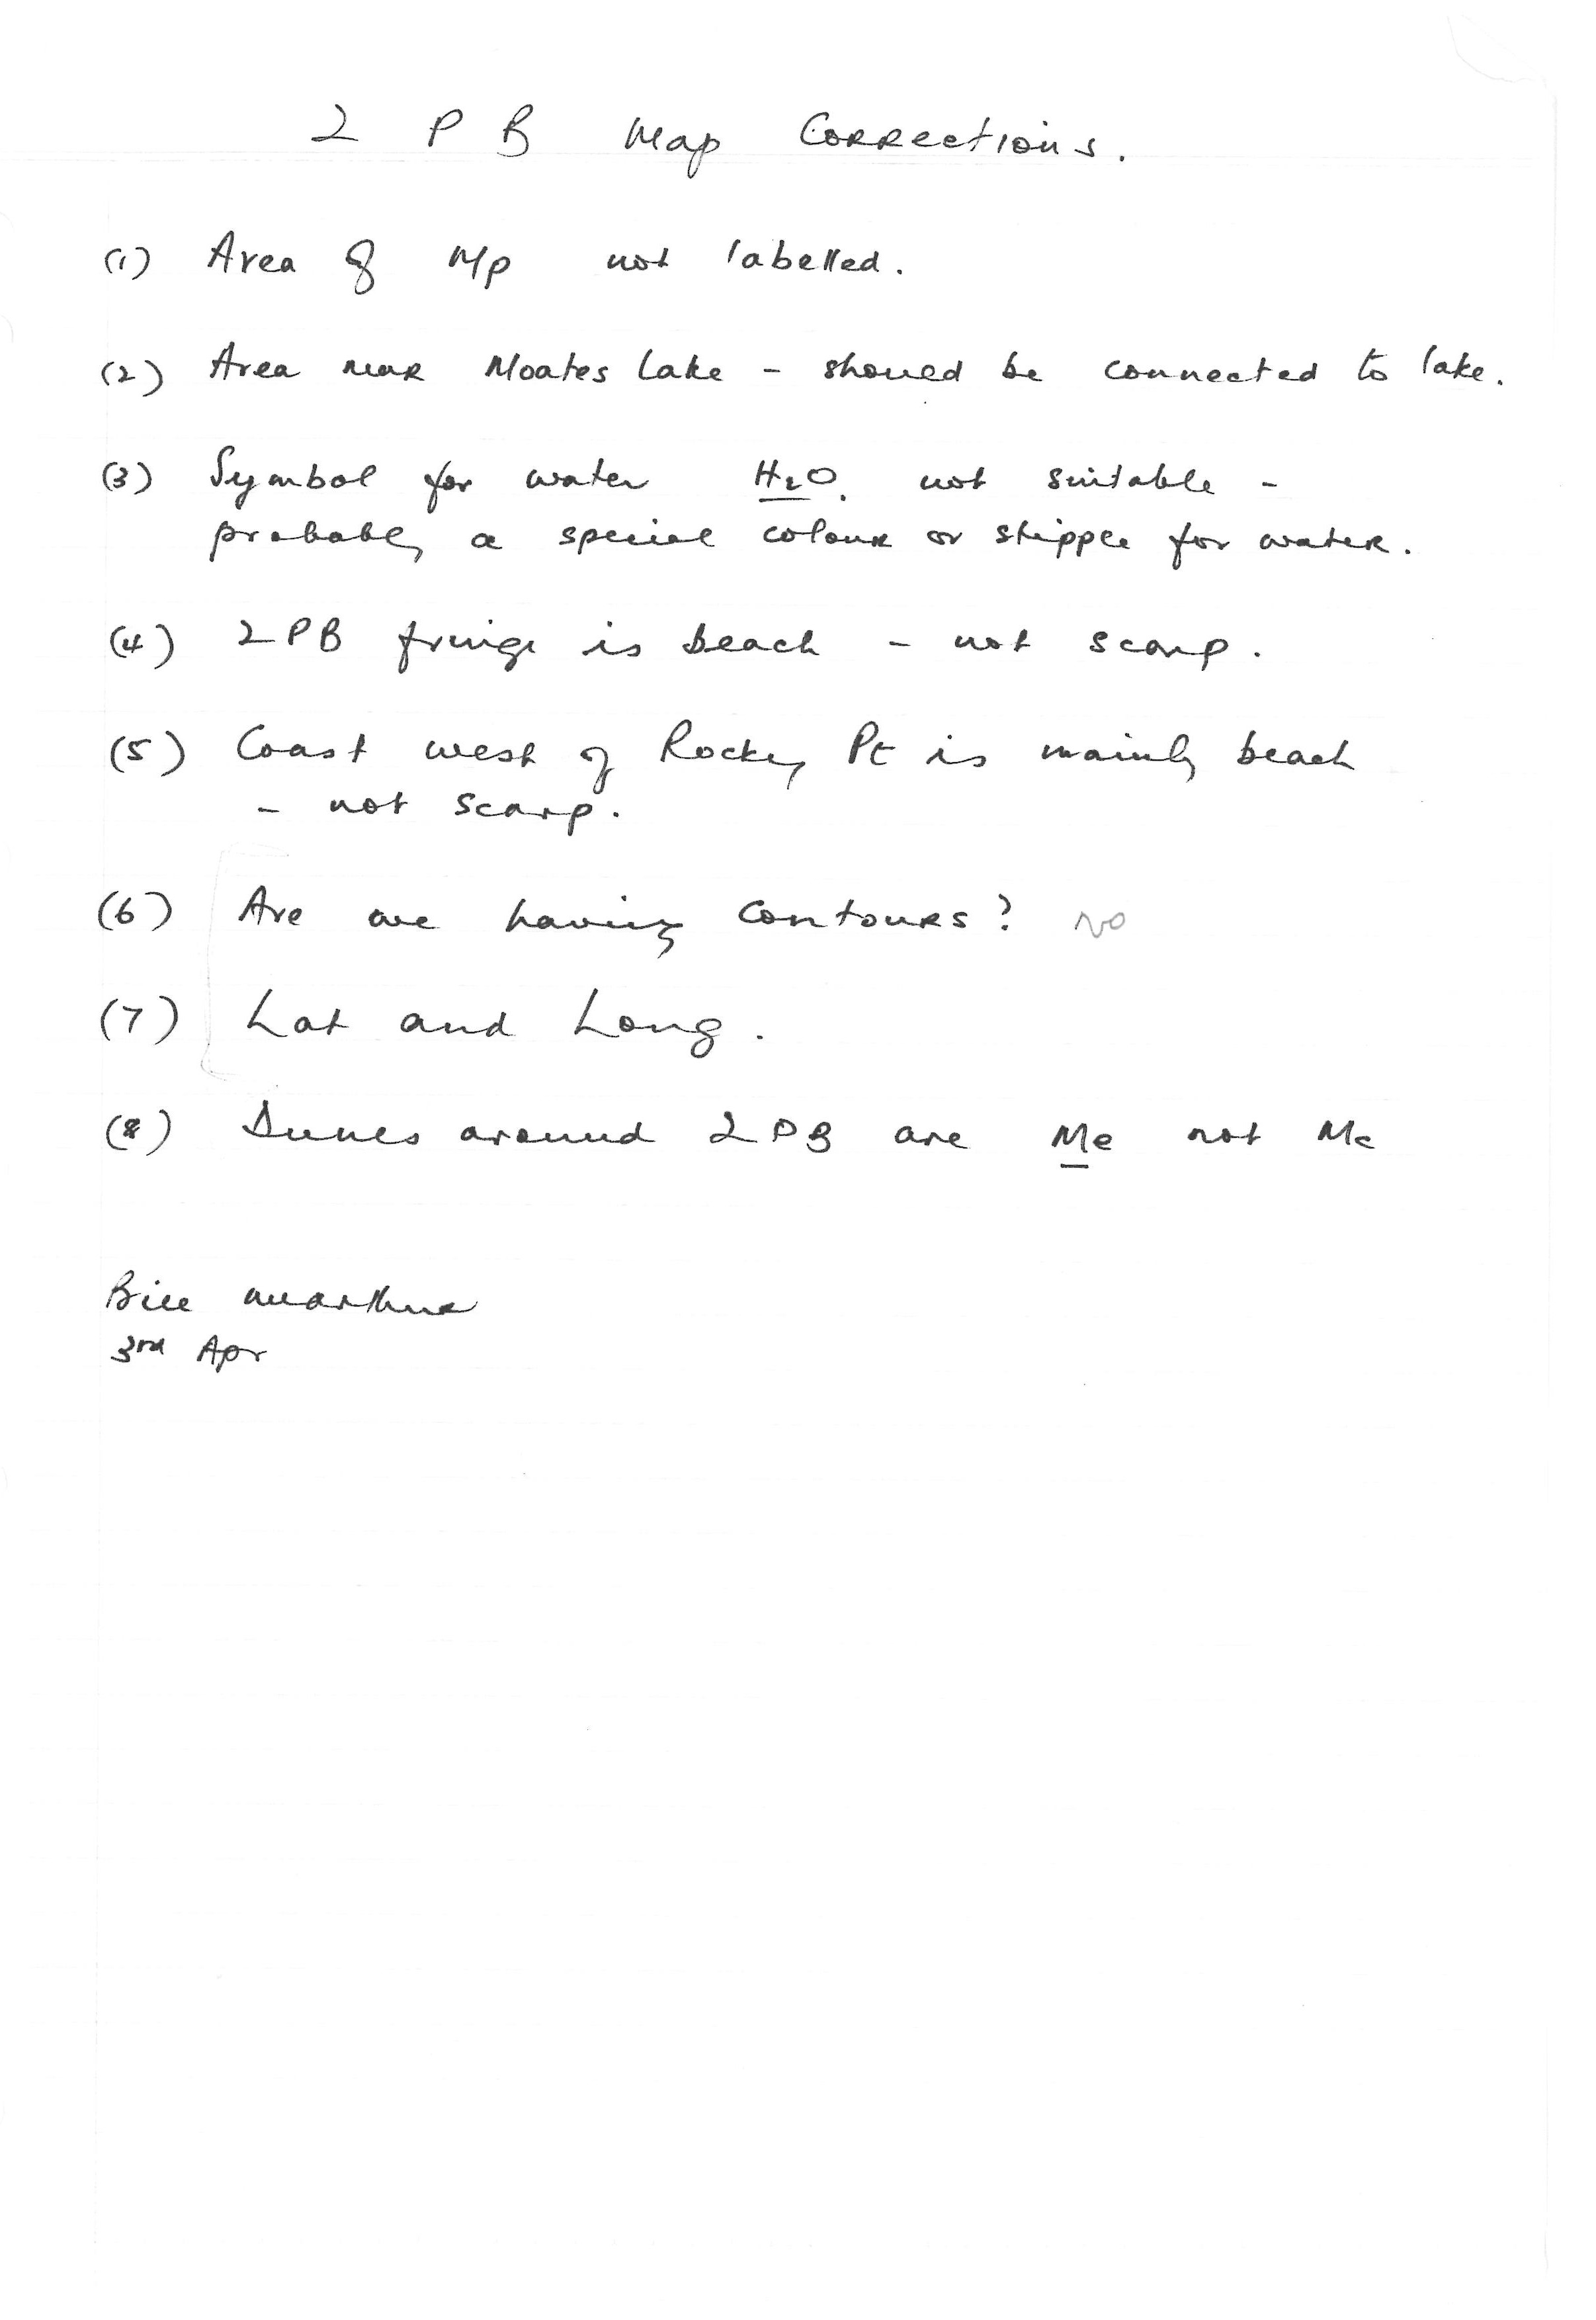 2 P B Map Corrections.
(1) Area of Mp not labelled.
(2) Area near Moates Lake - should be connected to lake.
(3) Symbol for water H2O. not suitable -
probably a special colour or stipple for water.
(4) 2PB fringe is beach - not scarp.
(5) Coast west of Rocky Pt is mainly beach
- not scarp.
(6) Are we having contours? NO
(7) Lat and Long.
(8) Dunes around 2PB are Me not Mc
Bill McArthur
3rd Apr